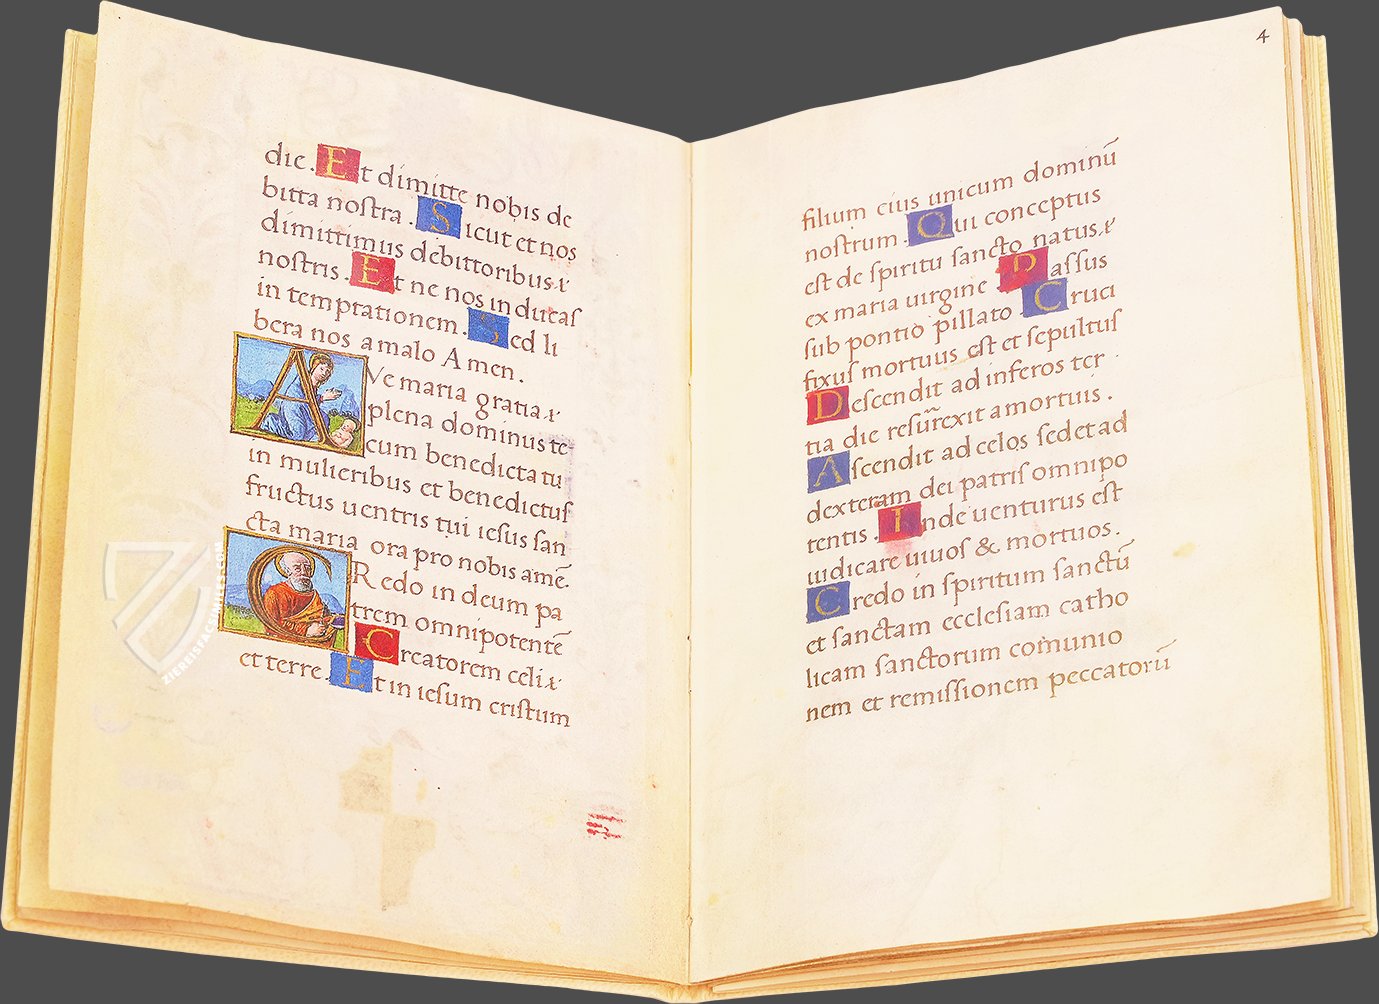 die. Et dimitte nobis de
bitta nostra. Sicut et nos
dimittimus debittoribus. &
nostris. Et ne nos inducas
in temprationem. Sed li
bera nos amalo Amen.
AVe maria gratia. &
plena dominus te
cum benedicta tu
in mulieribus et benedictus
fructus uentris tui iesus san
cta maria ora pro nobis amē.
CRedo in deum pa
trem omnipotentē
Creatorem celi. &
et terre. Et in iesum cristum
4
filium eius unicum dominū
nostrum. Qui conceptus
est de spiritu sancto natus. &
ex maria uirgine. Passus
sub pontio pillato. Cruci
fixus mortuus est et sepultus
Descendit ad inferos ter
tia die resurrexit amortuis.
Ascendit ad celos sedet ad
dexteram dei patris omnipo
tentis. Inde uenturus est
iudicare uiuos & mortuos.
Credo in spiritum sanctū
et sanctam ecclesiam catho
licam sanctorum comunio
nem et remissionem peccatorū
ZIEREIS FACSIMILES.COM